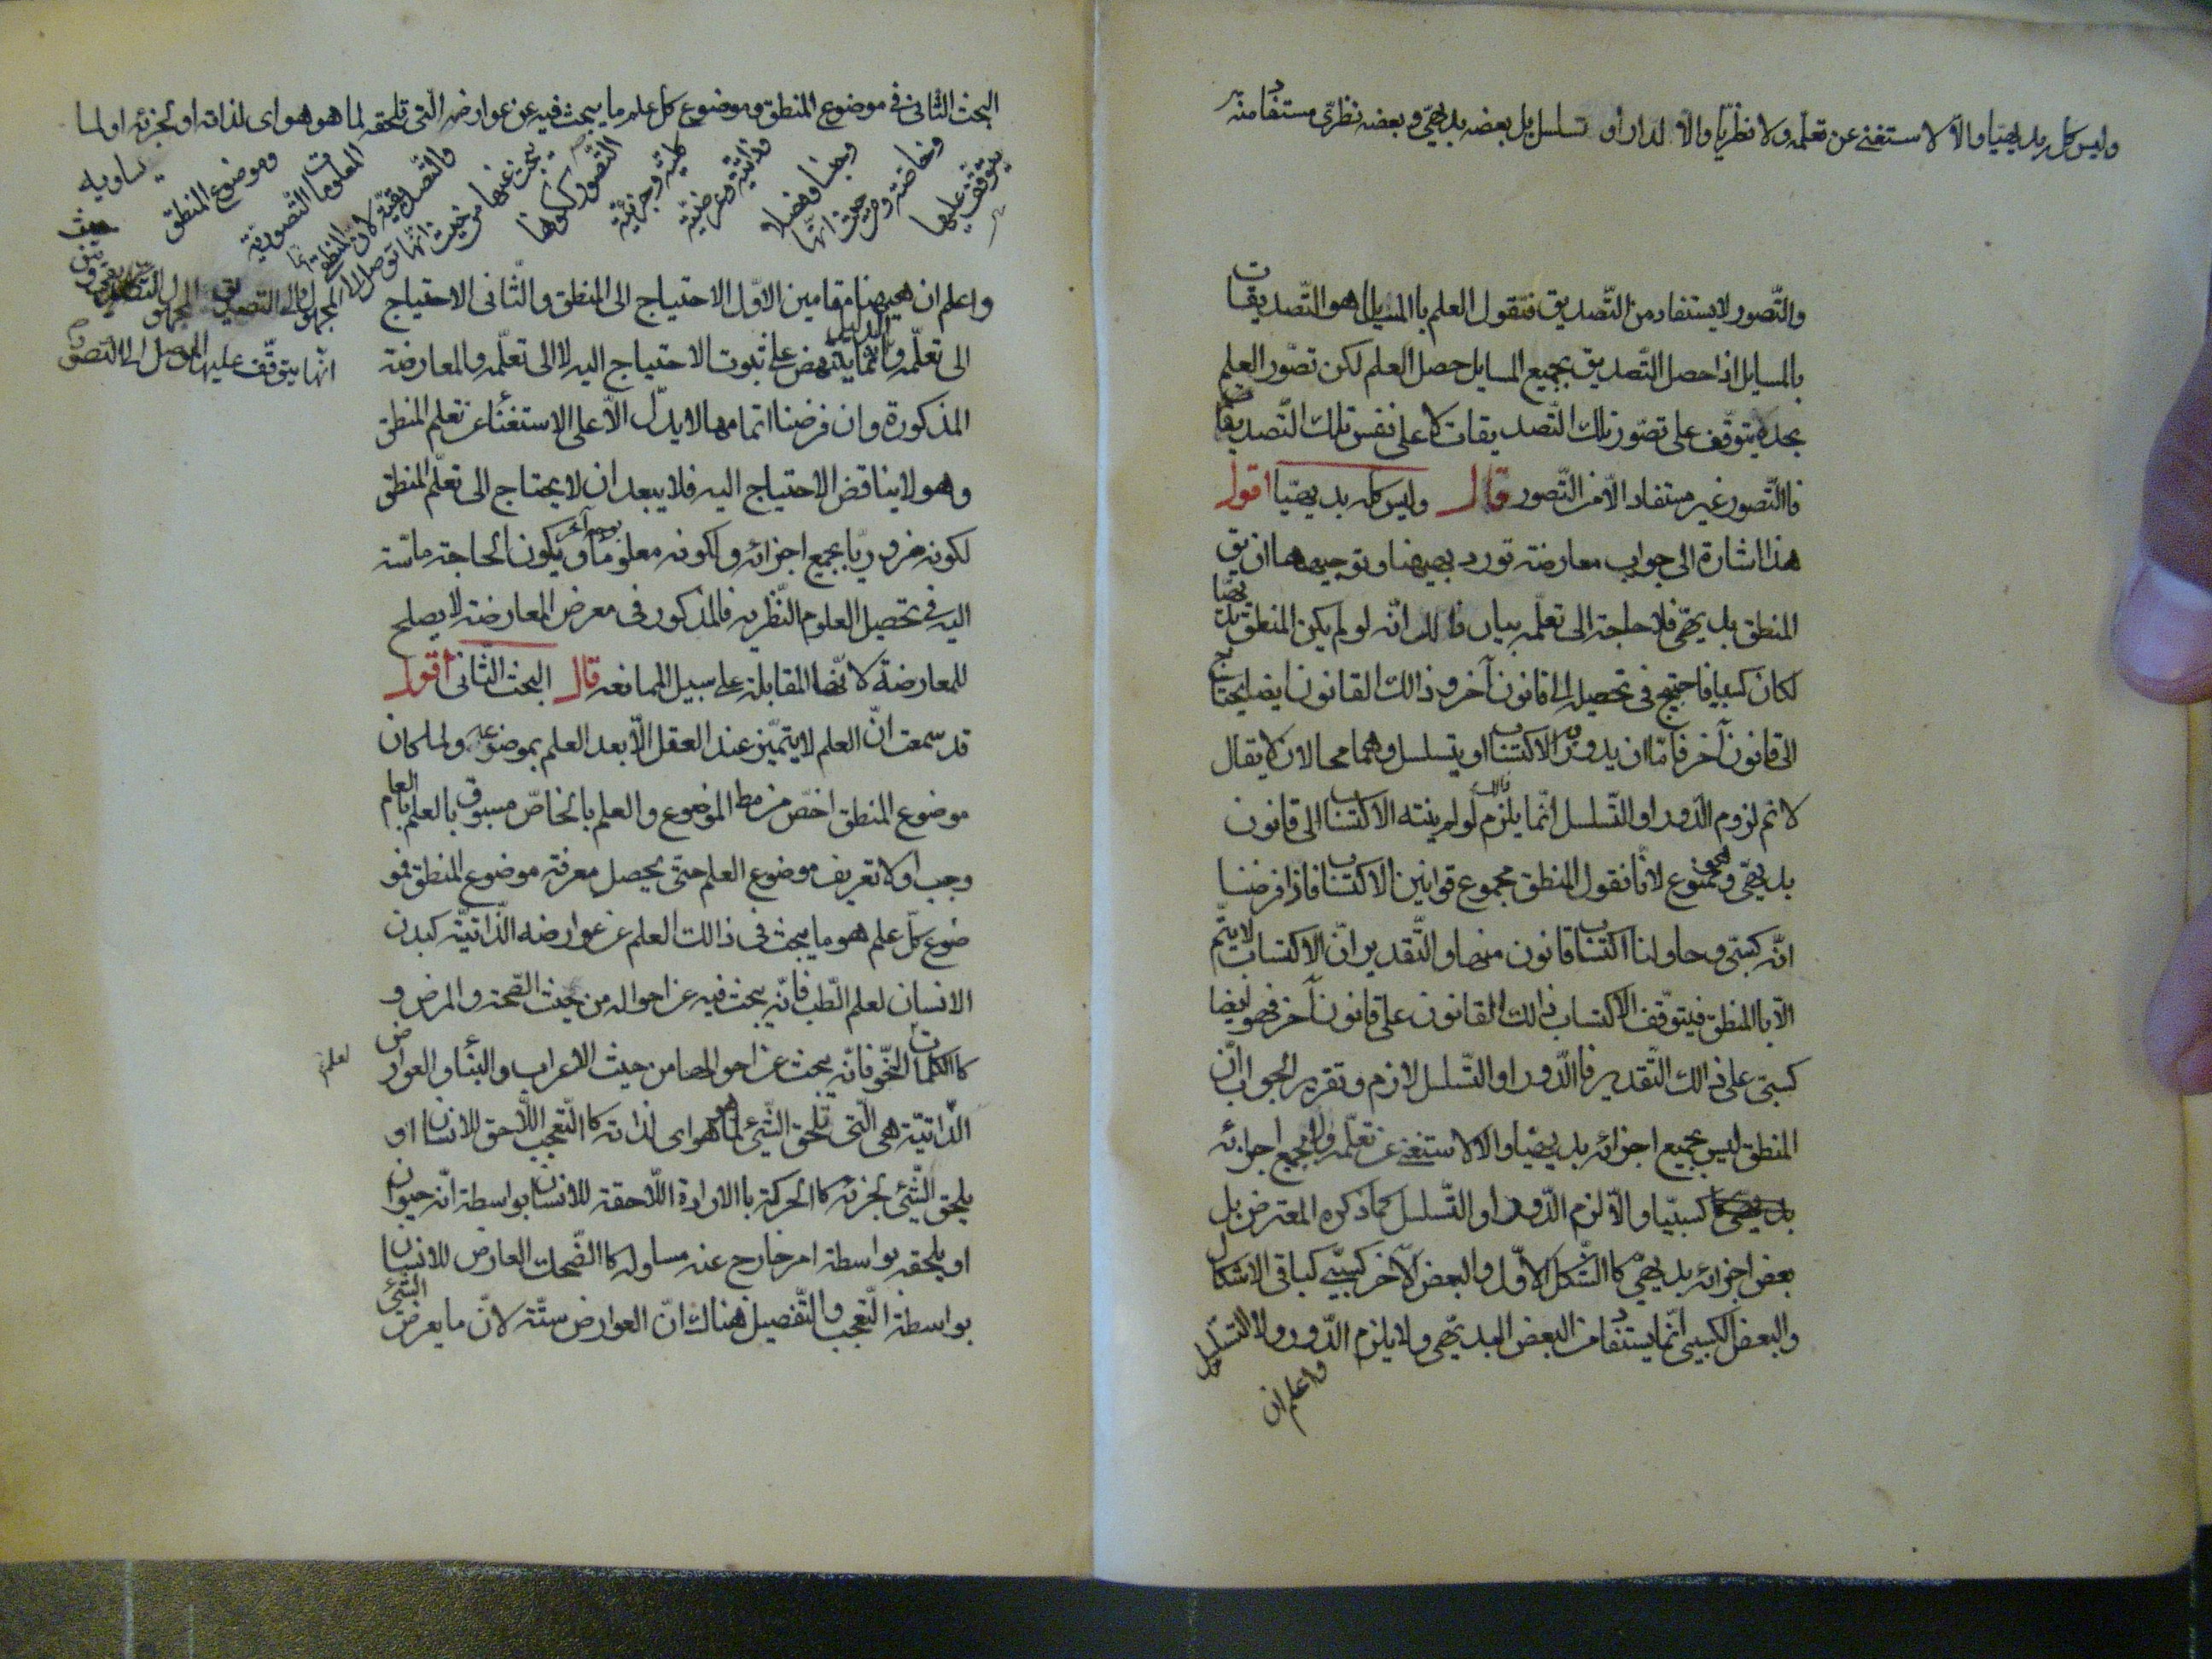 وليس كل بديهيا والا لاستغنى عن تعلمه ولا نظريا والا لدار او تسلسل بل بعضه بديهى وبعضه نظرى مستفاد منه
والتصور لا يستفاد من التصديق فنقول العلم باالمسايل هو التصديقات
بالمسايل اذا حصل التصديق بجميع المسايل حصل العلم لكن تصور العلم
بحده يتوقف على تصور تلك التصديقات لا على نفس تلك التصديقات
فاالتصور غير مستفاد الا من التصور قال وليس كله بديهيا اقول
هذا اشارة الى جواب معارضة تورد ههنا وتوجيهها ان يق
المنطق بديهى فلا حاجة الى تعلمه بيان ذالك انه لو لم يكن المنطق بديهيا
لكان كسبيا فاحتيج فى تحصيله الى قانون آخر وذالك القانون ايضا يحتاج
الى قانون آخر فاما ان يدور الاكتساب او يتسلسل وهما محالان لا يقال
لانم لزوم الدور او التسلسل انما يلزم ذالك لو لم ينته الاكتساب الى قانون
بديهى وهو ممنوع لانا نقول المنطق مجموع قوانين الاكتساب فاذا فرضنا
انه كسبى وحاولنا اكتساب قانون منها والتقدير ان الاكتساب لا يتم
الا باالمنطق فيتوقف اكتساب ذالك القانون على قانون آخر فهو ايضا
كسبى على ذالك التقدير فاالدور او التسلسل لازم وتقرير الجواب ان
المنطق ليس بجميع اجزائه بديهيا والا لاستغنى عن تعلمه ولا بجميع اجزائه
كسبيا والا لزم الدور او التسلسل كما ذكره المعترض بل
بعض اجزائه بديهى كاالشكل الاول والبعض الآخر كسبى كباقى الاشكال
والبعض الكسبى انما يستفاد من البعض البديهى ولا يلزم الدور ولا التسلسل
واعلم ان
البحث الثانى فى موضوع المنطق وموضوع كل علم ما يبحث فيه عن عوارضه التى تلحقه لما هو هو اى لذاته او لجزئه او لما
يساويه
وموضوع المنطق
المعلومات التصورية
والتصديقية لان المنطقى انما
يبحث عنها من حيث انها توصل الى
المجهول التصديقى
انها يتوقف عليها الموصل الى التصور
التصور ككونها
كلية وجزئية
وذاتية وعرضية
وجنسا وفصلا
وخاصة ومن حيث انها
يتوقف عليها
واعلم ان ههنا مقامين الاول الاحتياج الى المنطق والثانى الاحتياج
الى تعلمه والدليل انما ينتهض على ثبوت الاحتياج اليه لا الى تعلمه والمعارضة
المذكورة وان فرضنا اتمامها لا يدل الا على الاستغناء عن تعلم المنطق
وهو لا يناقض الاحتياج اليه فلا يبعد ان لا يحتاج الى تعلم المنطق
لكونه ضروريا بجميع اجزائه ولكونه معلوما بوجه آخر ويكون الحاجة ماسة
اليه فى تحصيل العلوم النظريه فالمذكور فى معرض المعارضة لا يصلح
للمعارضة لانها المقابلة على سبيل الممانعه قال البحث الثانى اقول
قد سمعت ان العلم لا يتميز عند العقل الا بعد العلم بموضوعه ولما كان
موضوع المنطق اخص من مط الموضوع والعلم بالخاص مسبوق باالعلم باالعام
وجب اولا تعريف موضوع العلم حتى يحصل معرفة موضوع المنطق فمو
ضوع كل علم هو ما يبحث فى ذالك العلم عن عوارضه الذاتية كبدن
الانسان لعلم الطب فانه يبحث فيه عن احواله من حيث الصحة والمرض و
كاالكلمات لعلم النحو فانه يبحث عن احوالها من حيث الاعراب والبناء والعوارض
الذاتية هى التى تلحق الشئ لما هو هو اى لذاته كاالتعجب اللاحق للانسان او
يلحق الشئ لجزئه كاالحركة باالارادة اللاحقة للانسان بواسطة انه حيوان
او يلحقه بواسطة امر خارج عنه مساو له كاالضحك العارض للانسان
بواسطة التعجب والتفصيل هناك ان العوارض ستة لان ما يعرض الشئ